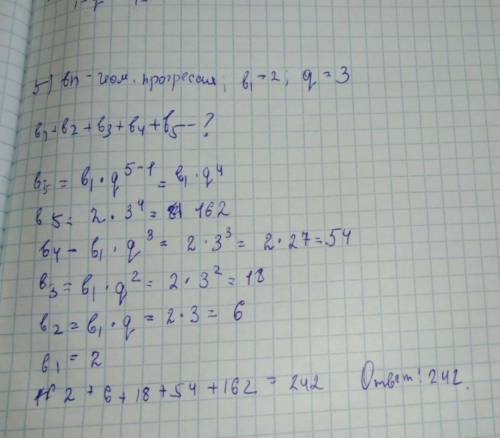 5) вn - геом. прогрессия; в₁ = 2; q = 3
в₁ + в₂ + в₃ + в₄ + в₅ - ?
в₅ = в₁ · q⁵⁻¹ = в₁ · q⁴
в5 = 2 · 3⁴ = 162
в4 - в₁ · q³ = 2 · 3³ = 2 · 27 = 54
в₃ = в₁ · q² = 2 · 3² = 18
в₂ = в₁ · q = 2 · 3 = 6
в₁ = 2
2 + 6 + 18 + 54 + 162 = 242 Ответ: 242.